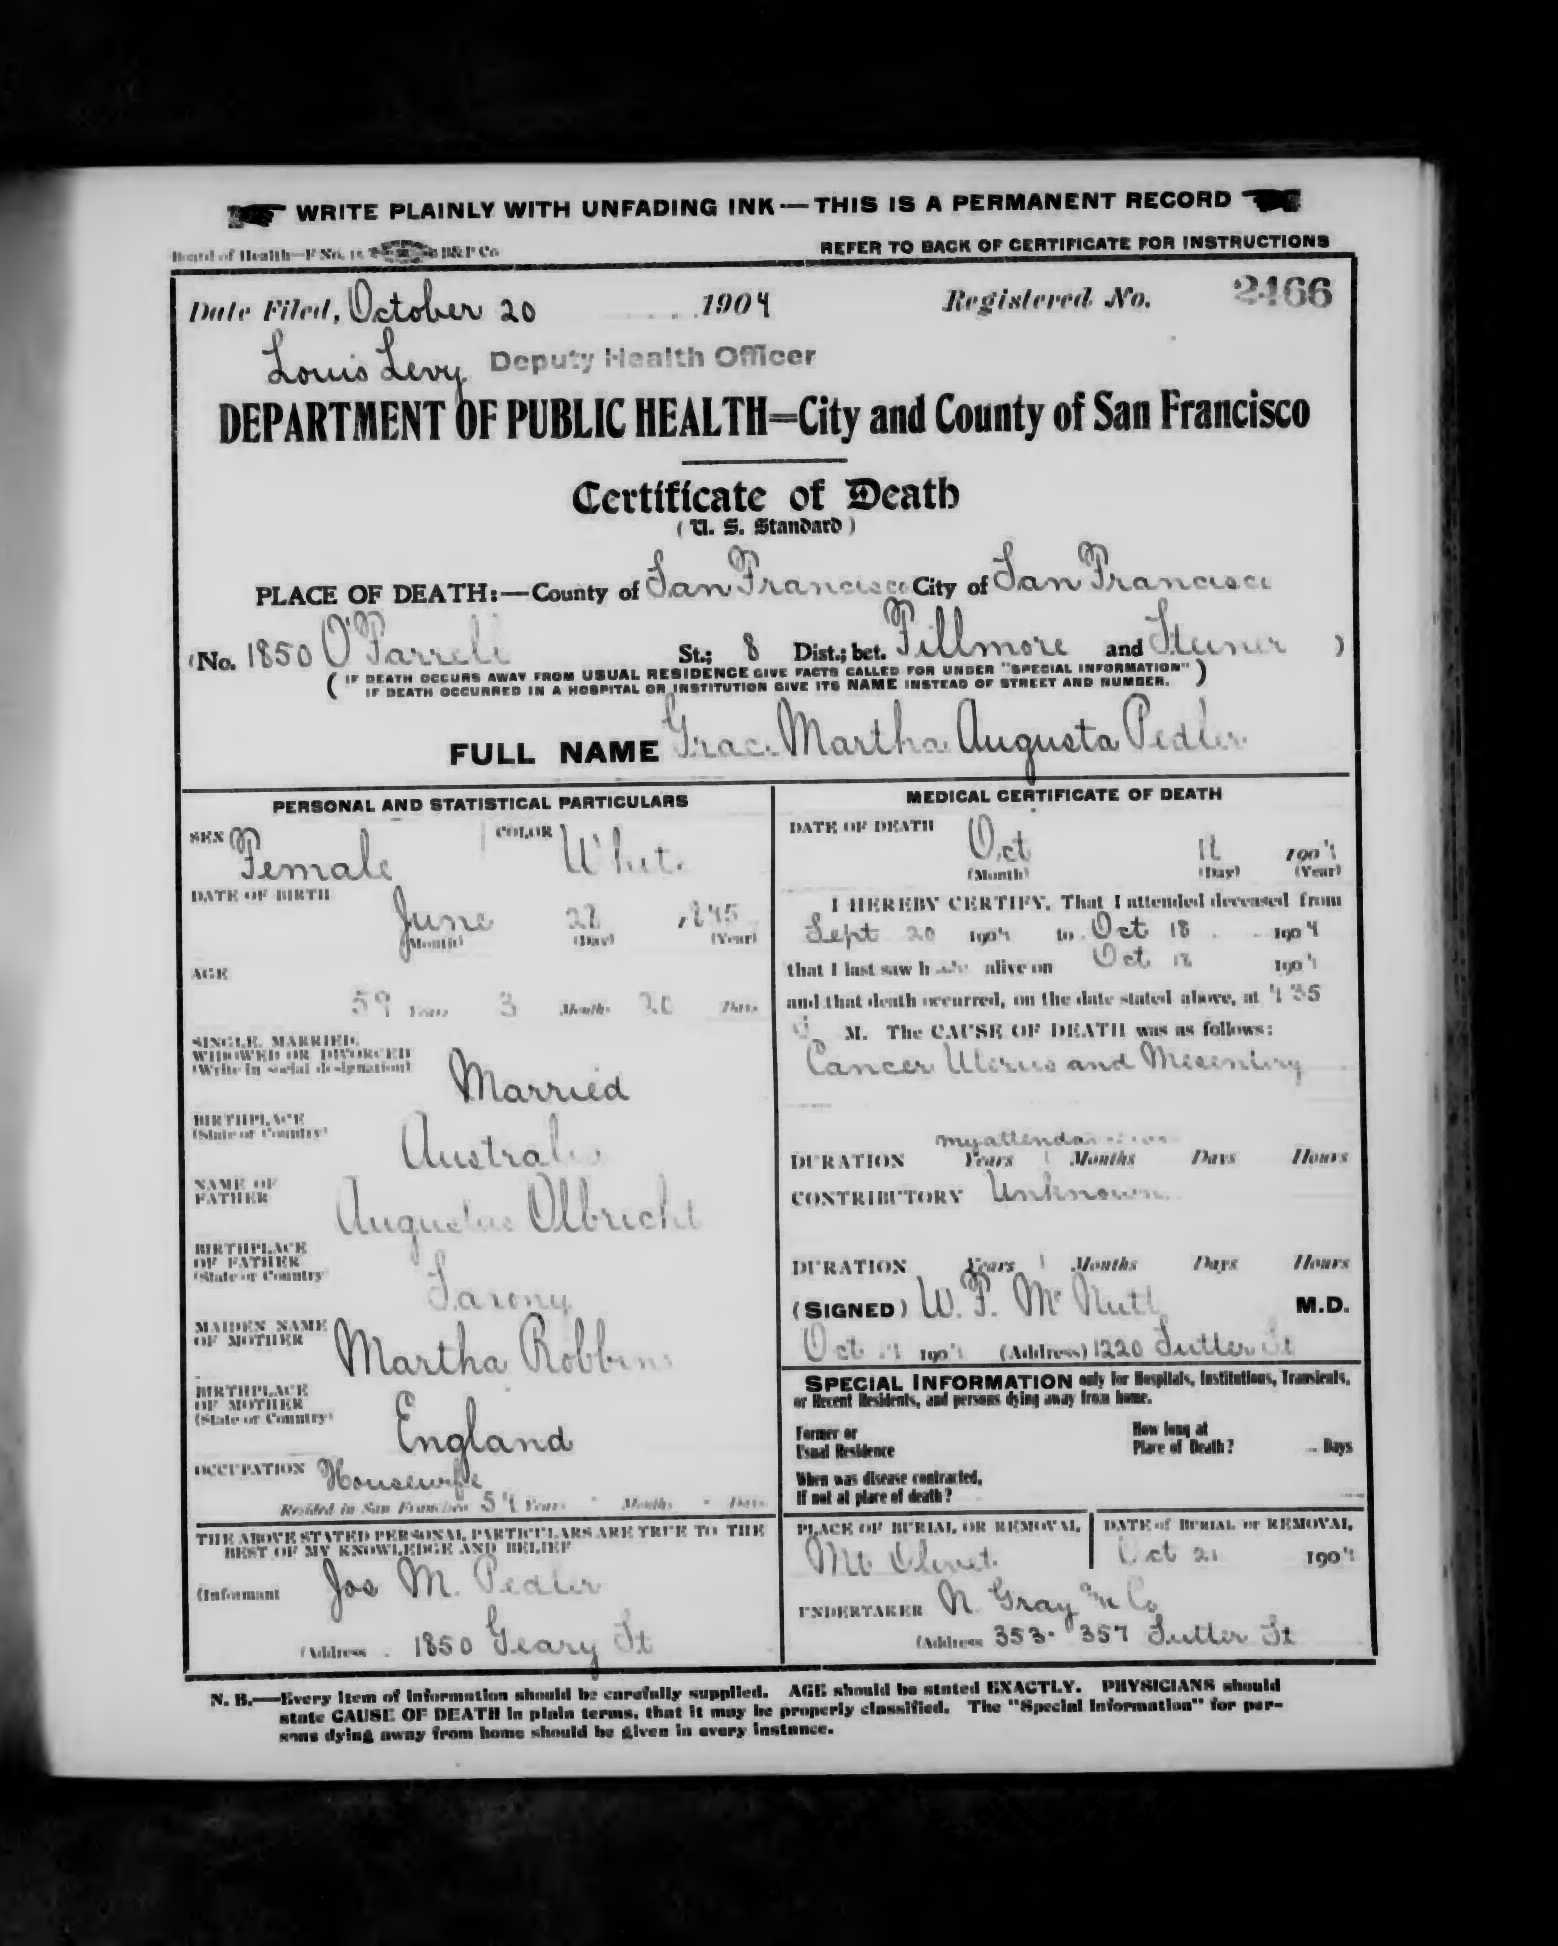 WRITE PLAINLY WITH UNFADING INK—THIS IS A PERMANENT RECORD
Board of Health—F No. B&P Co
REFER TO BACK OF CERTIFICATE FOR INSTRUCTIONS
Date Filed, October 20 1904 Registered No. 2466
Louis Levy Deputy Health Officer
DEPARTMENT OF PUBLIC HEALTH=City and County of San Francisco
Certificate of Death
(U. S. Standard)
PLACE OF DEATH:—County of San Francisco City of San Francisco
(No. 1850 O'Farrell St.; 8 Dist.; bet. Fillmore and Steiner )
( IF DEATH OCCURS AWAY FROM USUAL RESIDENCE GIVE FACTS CALLED FOR UNDER "SPECIAL INFORMATION" )
IF DEATH OCCURRED IN A HOSPITAL OR INSTITUTION GIVE ITS NAME INSTEAD OF STREET AND NUMBER.
FULL NAME Grace Martha Augusta Pedler
PERSONAL AND STATISTICAL PARTICULARS
SEX Female COLOR White
DATE OF BIRTH
June 28 1845
(Month) (Day) (Year)
AGE
59 Years 3 Months 20 Days
SINGLE, MARRIED,
WIDOWED OR DIVORCED
(Write in social designation)
Married
BIRTHPLACE
(State or Country)
Australia
NAME OF
FATHER
Augustus Olbricht
BIRTHPLACE
OF FATHER
(State or Country)
Saxony
MAIDEN NAME
OF MOTHER
Martha Robbins
BIRTHPLACE
OF MOTHER
(State or Country)
England
OCCUPATION Housewife
Resided in San Francisco 54 Years - Months - Days
THE ABOVE STATED PERSONAL PARTICULARS ARE TRUE TO THE
BEST OF MY KNOWLEDGE AND BELIEF
(Informant Jos M. Pedler
(Address 1850 Geary St
MEDICAL CERTIFICATE OF DEATH
DATE OF DEATH
Oct 1904
(Month) (Day) (Year)
I HEREBY CERTIFY, That I attended deceased from
Sept 20 1904 to Oct 18 1904
that I last saw h alive on Oct 18 1904
and that death occurred, on the date stated above, at 4 35
M. The CAUSE OF DEATH was as follows:
Cancer Uterus and Mesentery
my attendance
DURATION Years 1 Months Days Hours
CONTRIBUTORY Unknown
DURATION Years Months Days Hours
(SIGNED) W. F. McNutt M.D.
Oct 1904 (Address) 1220 Sutter St
SPECIAL INFORMATION only for Hospitals, Institutions, Transients,
or Recent Residents, and persons dying away from home.
Former or
Usual Residence
How long at
Place of Death? Days
When was disease contracted,
If not at place of death?
PLACE OF BURIAL OR REMOVAL
Mt Olivet
DATE of BURIAL or REMOVAL
Oct 21 1904
UNDERTAKER N. Gray & Co
(Address 353-357 Sutter St
N. B.—Every item of information should be carefully supplied. AGE should be stated EXACTLY. PHYSICIANS should
state CAUSE OF DEATH in plain terms, that it may be properly classified. The "Special Information" for per-
sons dying away from home should be given in every instance.